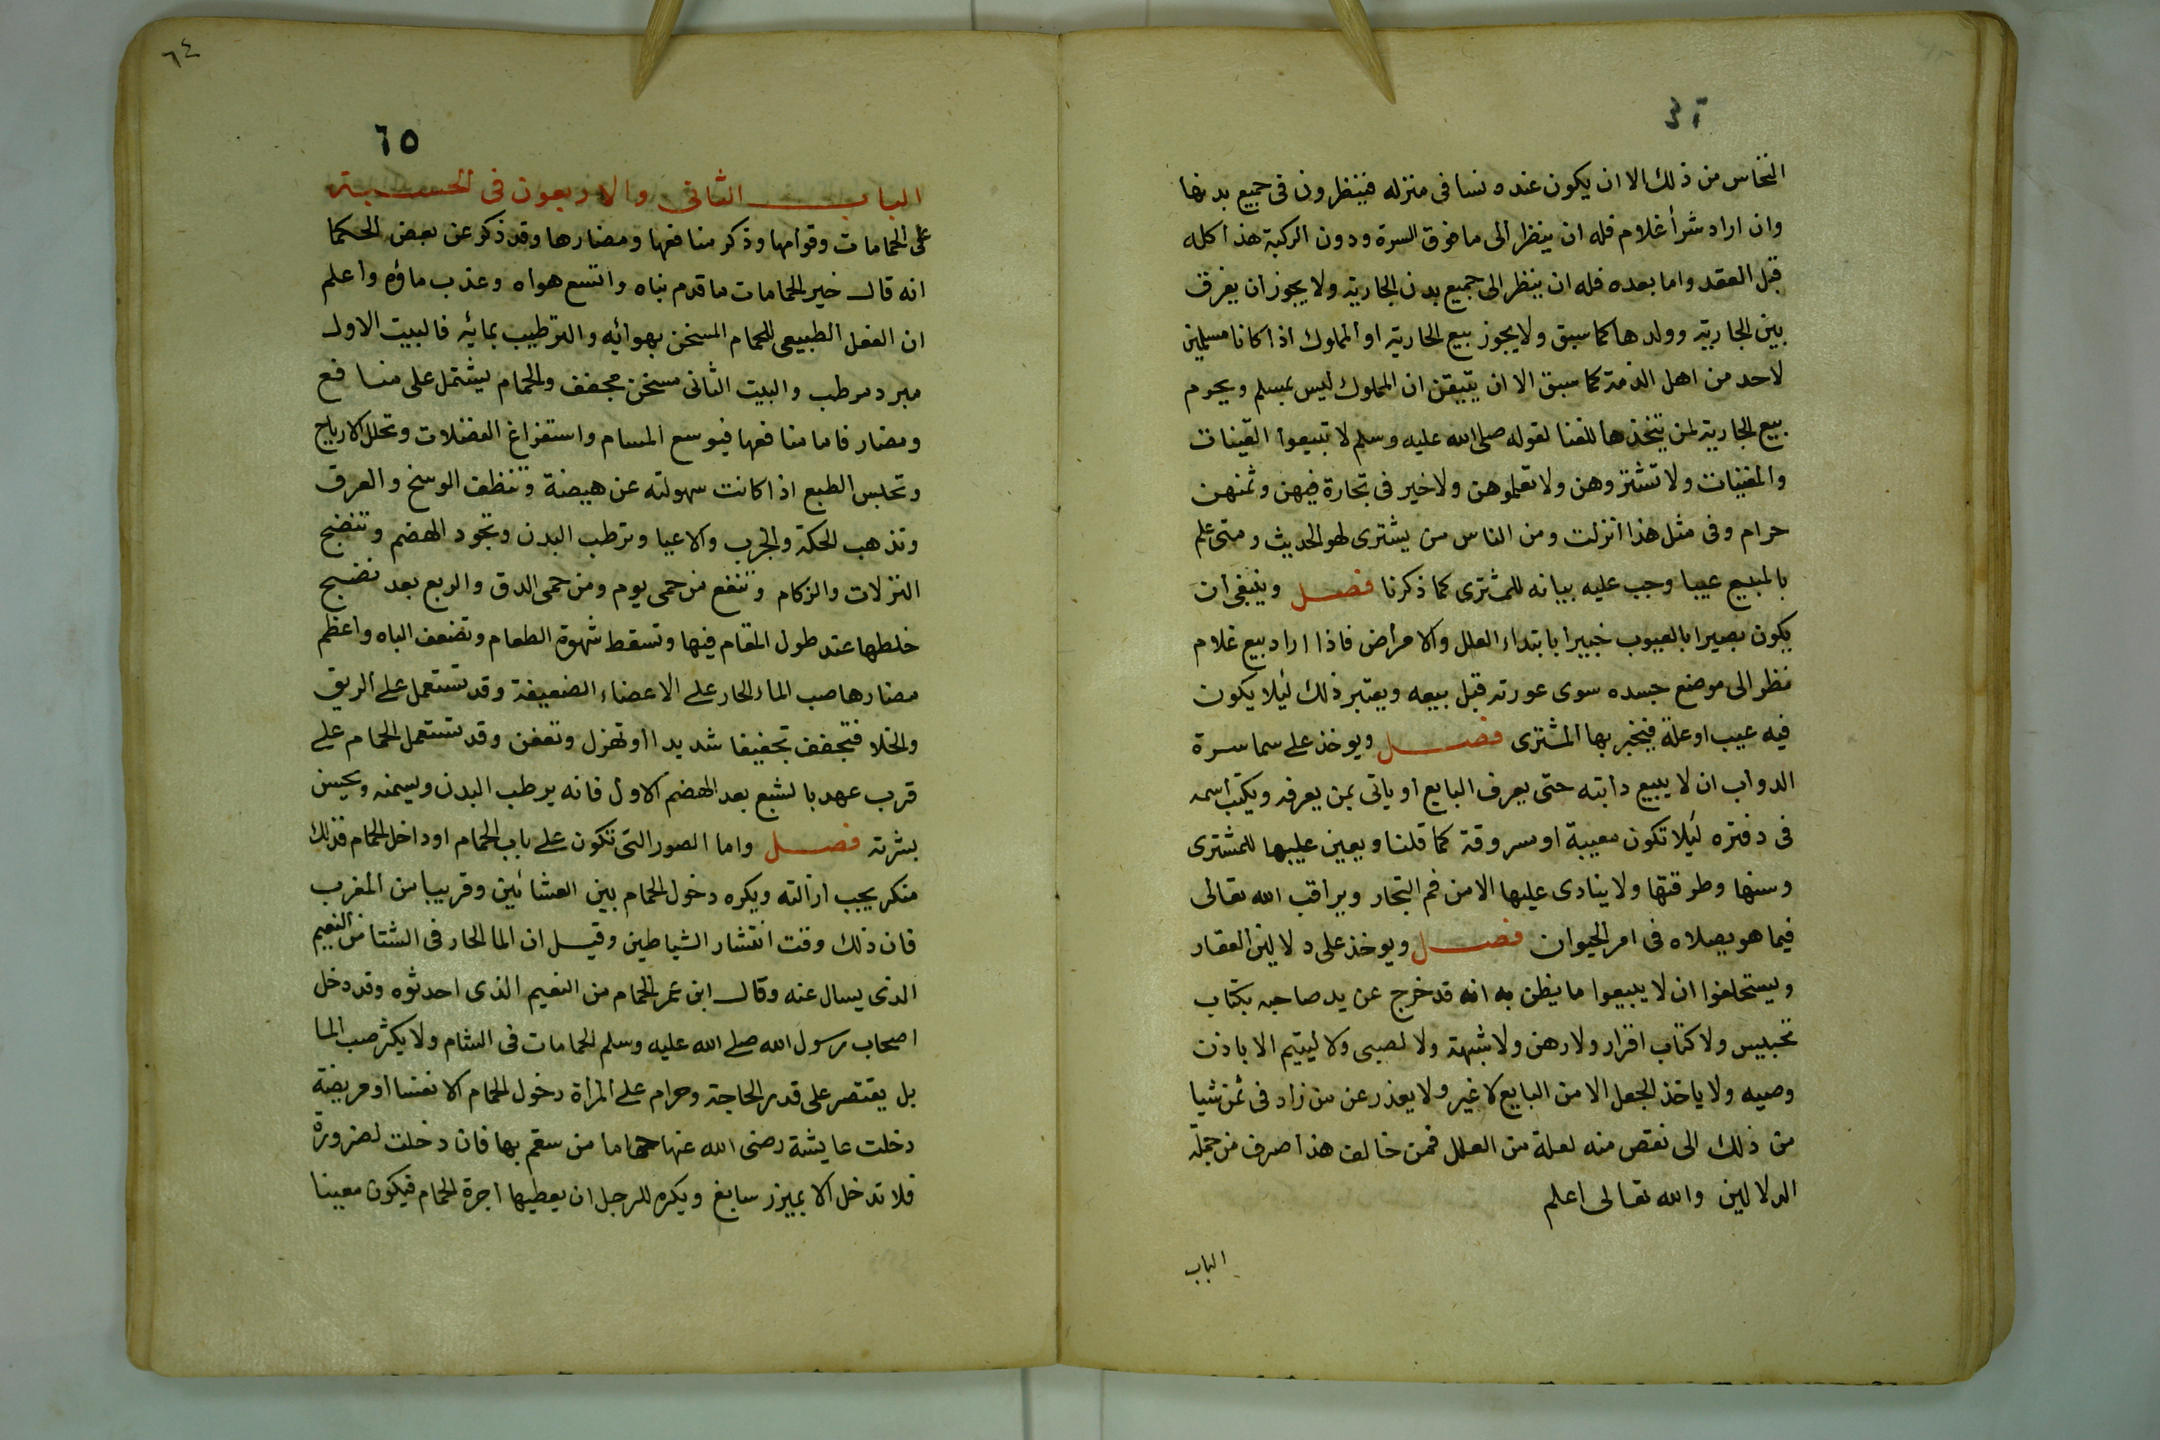 ٦٤
النخاس من ذلك الا ان يكون عنده نسا فى منزله فينظرون فى جميع بدنها
وان اراد شرأ غلام فله ان ينظر الى ما فوق السرة ودون الركبة هذا كله
قبل العقد واما بعده فله ان ينظر الى جميع بدن الجارية ولا يجوز ان يفرق
بين الجارية وولدها كما سبق ولا يجوز بيع الجارية او المملوك اذا كانا مسلمين
لاحد من اهل الذمة كما سبق الا ان يتيقن ان المملوك ليس بمسلم ويحرم
بيع الجارية لمن يتخذها للغنا لقوله صلى الله عليه وسلم لا تبيعوا القينات
والمغنيات ولا تشتروهن ولا تعلموهن ولا خير فى تجارة فيهن وثمنهن
حرام وفى مثل هذا انزلت ومن الناس من يشترى لهو الحديث ومتى علم
بالمبيع عيبا وجب عليه بيانه للمشترى كما ذكرنا فصل وينبغى ان
يكون بصيرا بالعيوب خبيرا بابتداء العلل والامراض فاذا اراد بيع غلام
نظر الى موضع جسده سوى عورته قبل بيعه ويعتبر ذلك ليلا يكون
فيه عيب او علة فيخبر بها المشترى فصل ويوخذ على سماسرة
الدواب ان لا يبيع دابته حتى يعرف البايع او ياتى بمن يعرفه ويكتب اسمه
فى دفتره ليلا تكون معيبة او مسروقة كما قلنا ويعين عليها للمشترى
وسنها وطرقتها ولا ينادى عليها الا من فم التجار ويراقب الله تعالى
فيما هو بصلاه فى امر الحيوان فصل ويوخذ على دلالين العقار
ويستحلفوا ان لا يبيعوا ما يظن به انه قد خرج عن يد صاحبه بكتاب
تحبيس ولا كتاب اقرار ولا رهن ولا شبهة ولا لصبى ولا ليتيم الا باذن
وصيه ولا ياخذ الجعل الا من البايع لا غير ولا يعذر عن من زاد فى ثمن شيا
من ذلك الى نقص منه لعلة من العلل فمن خالف هذا صرف من جملة
الدلالين والله تعالى اعلم
الباب
٦٤
٦٥
الباب الثانى والاربعون فى الحسبة
على الحمامات وقوامها وذكر منافعها ومضارها وقد ذكر عن بعض الحكما
انه قال خير الحمامات ما قدم بناه واتسع هواه وعذب ماؤه واعلم
ان الفعل الطبيعى للحمام المسخن بهوائه والترطيب بمائه فالبيت الاول
مبرد مرطب والبيت الثانى مسخن مجفف والحمام يشتمل على منافع
ومضار فاما منافعها فيوسع المسام واستفراغ الفضلات وتحلل الارياح
وتحبس الطبع اذا كانت سهولته عن هيضة وتنظف الوسخ والعرق
وتذهب الحكة والجرب والاعيا وترطب البدن وتجود الهضم وتنضج
النزلات والزكام وتنفع من حمى يوم ومن حمى الدق والربع بعد نضج
خلطها عند طول المقام فيها وتسقط شهوة الطعام وتضعف الباه واعظم
مضارها صب الماء الحار على الاعضاء الضعيفة وقد تستعمل على الريق
والخلا فتجفف تجفيفا شديدا او تهزل وتعفن وقد تستعمل الحمام على
قرب عهد بالشبع بعد الهضم الاول فانه يرطب البدن ويسمنه ويحسن
بشرته فصل واما الصور التى تكون على باب الحمام او داخل الحمام فذلك
منكر يجب ازالته ويكره دخول الحمام بين العشائين وقريبا من المغرب
فان ذلك وقت انتشار الشياطين وقيل ان الما الحار فى الشتا من النعيم
الذى يسال عنه وقال ابن عمر الحمام من النعيم الذى احدثوه وقد دخل
اصحاب رسول الله صلى الله عليه وسلم الحمامات فى الشام ولا يكثر صب الما
بل يقتصر على قدر الحاجة وحرام على المرأة دخول الحمام الا نفسا او مريضة
دخلت عايشة رضى الله عنها حماما من سقم بها فان دخلت لضرورة
فلا تدخل الا بميزر سابغ ويكره للرجل ان يعطيها اجرة الحمام فيكون معينا